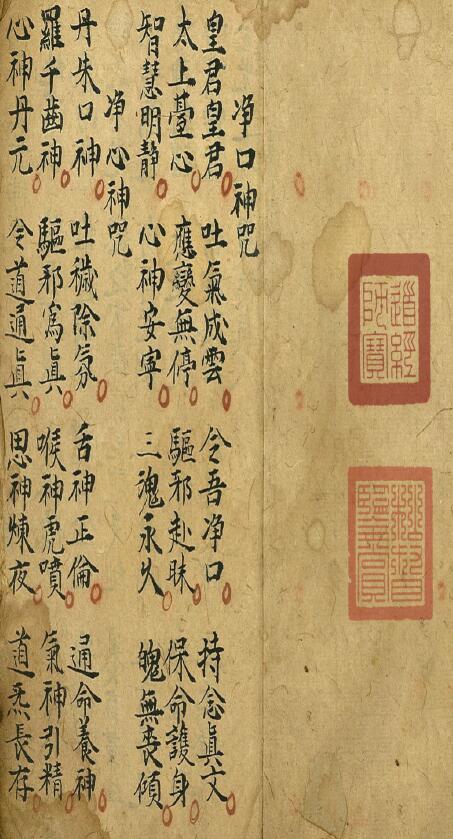 道經師寶
净口神咒
皇君皇君 吐氣成雲 令吾净口 持念眞文
太上臺心 應變無停 驅邪赴昧 保命護身
智慧明静 心神安寧 三魂永久 魄無喪傾
净心神咒
丹朱口神 吐穢除氛 舌神正倫 通命養神
羅千齒神 驅邪爲眞 喉神虎噴 氣神引精
心神丹元 令道通眞 思神煉夜 道炁長存